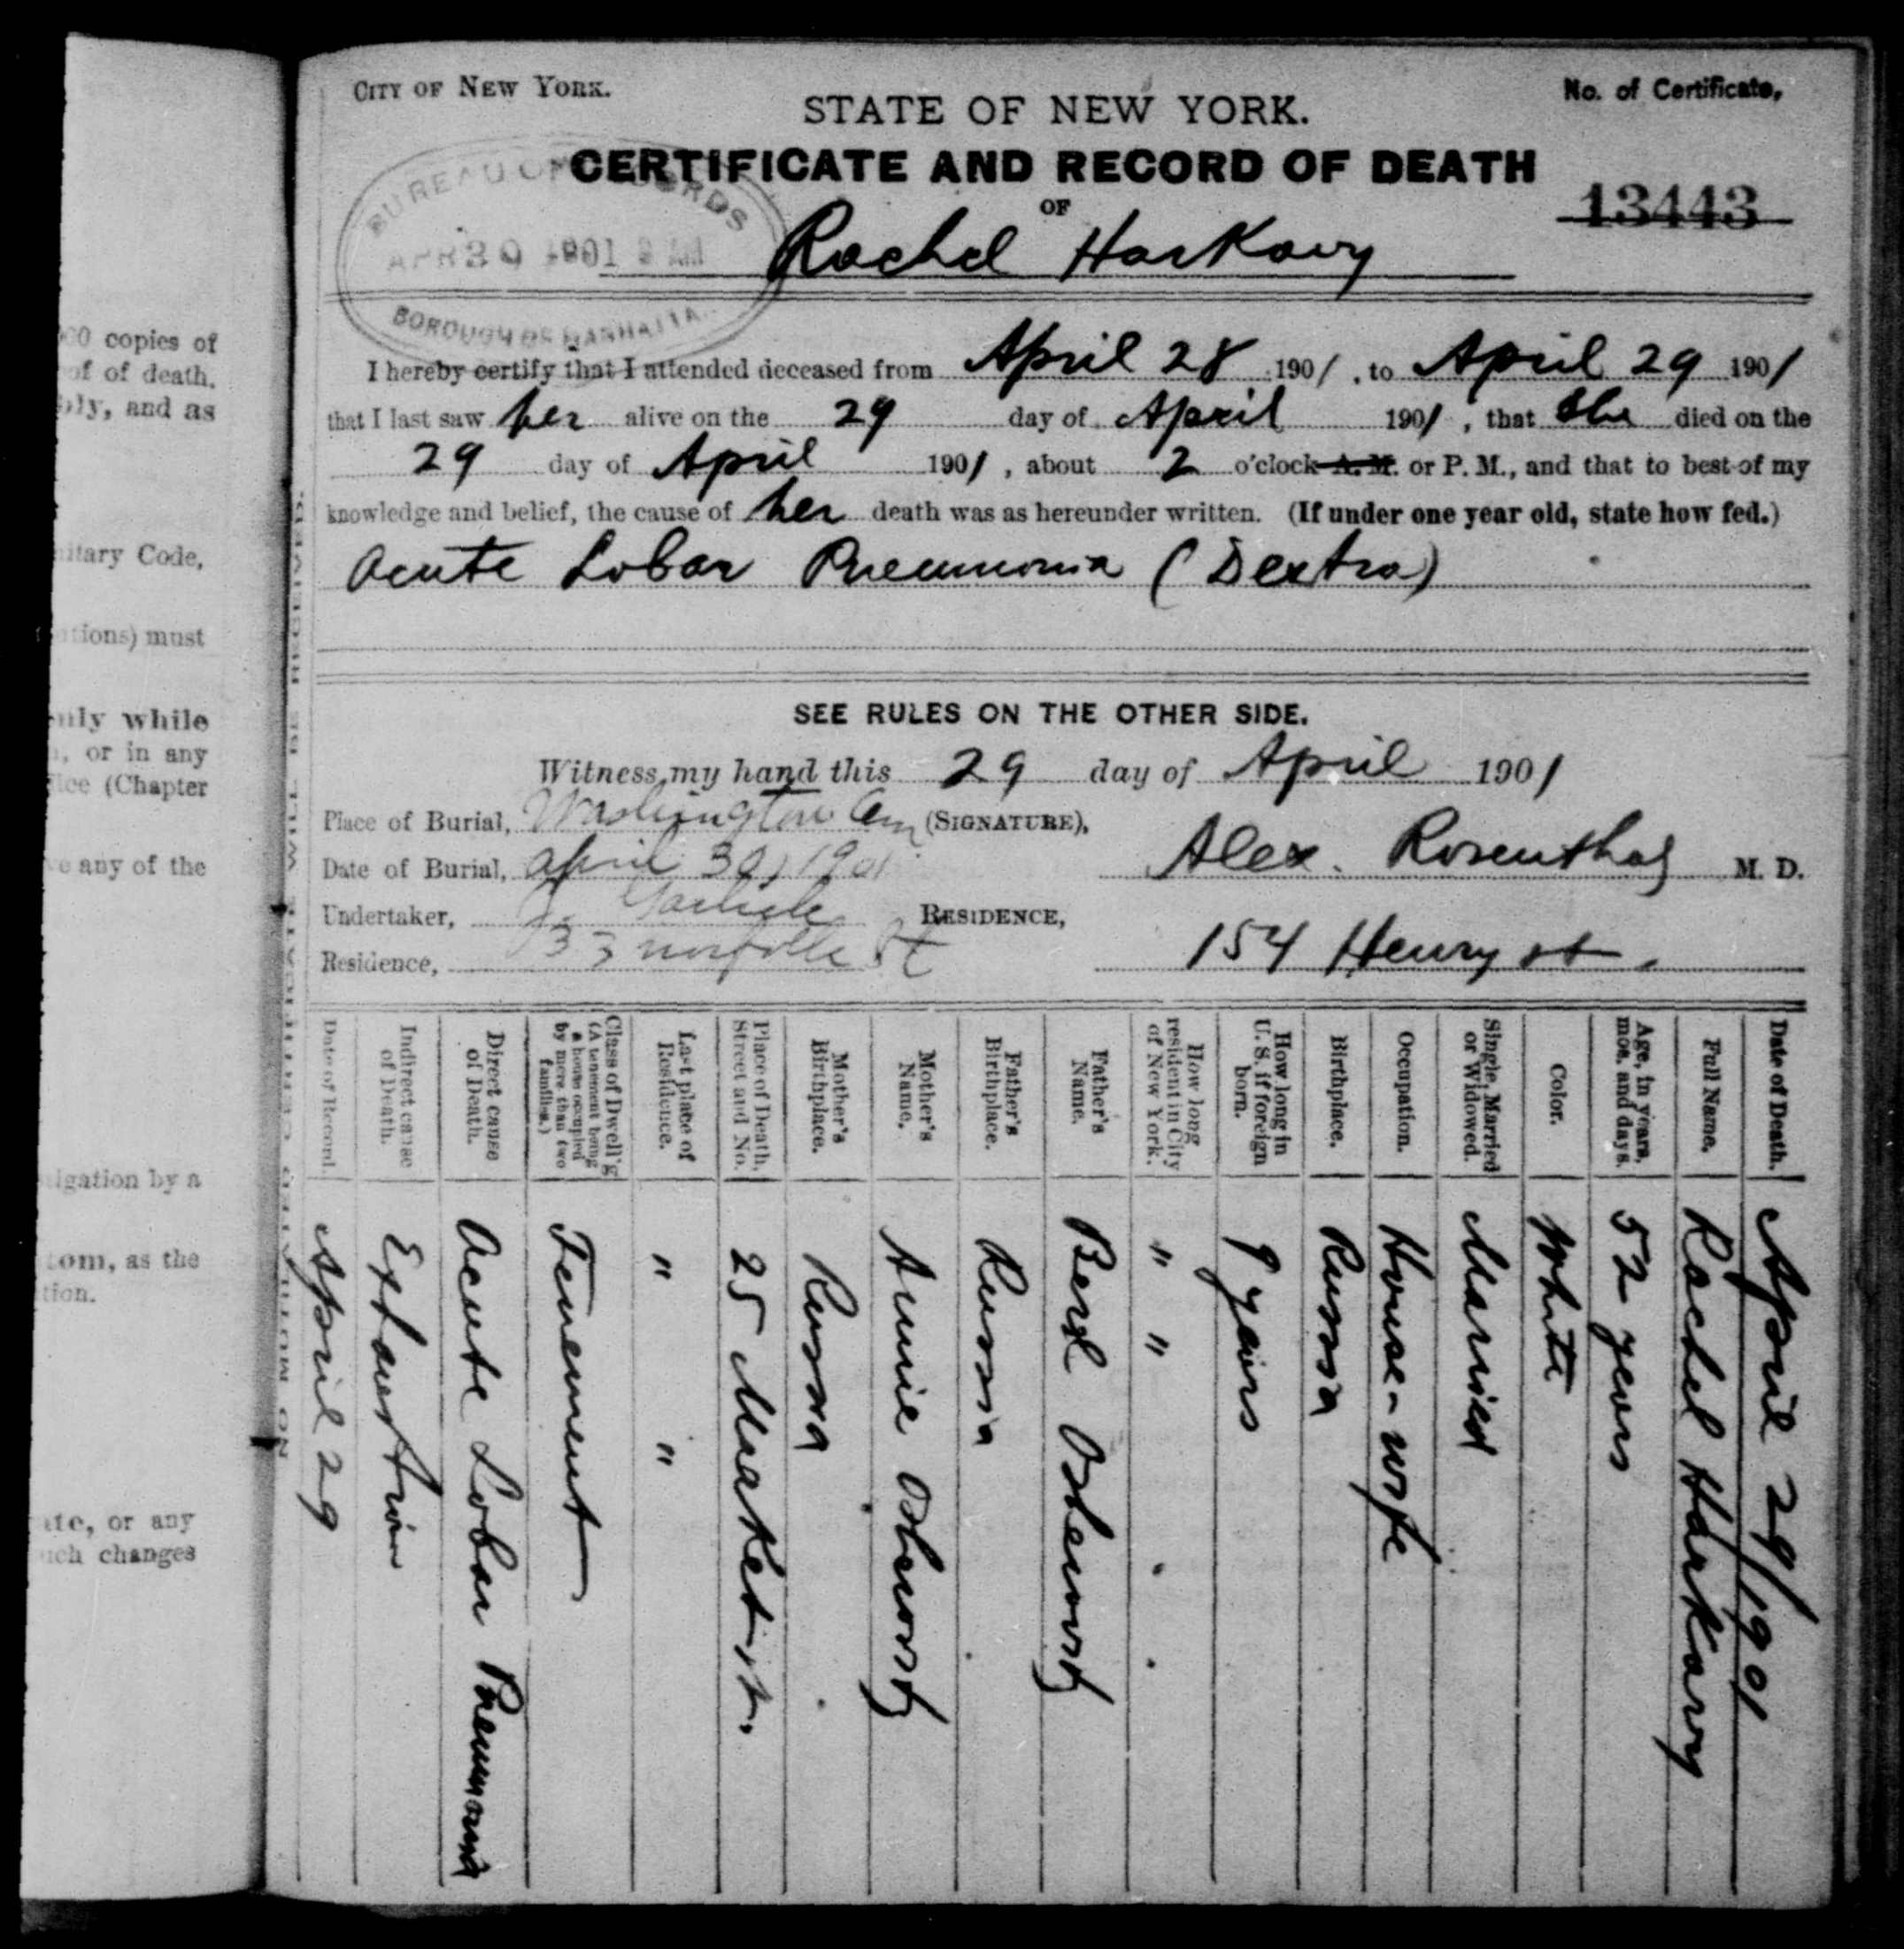 00 copies of
of of death.
bly, and as
nitary Code,
ations) must
nly while
, or in any
ice (Chapter
ve any of the
igation by a
tom, as the
tion.
ate, or any
uch changes
CITY OF NEW YORK.
No. of Certificate,
STATE OF NEW YORK.
CERTIFICATE AND RECORD OF DEATH
OF
13443
BUREAU OF RECORDS
APR 30 1901 9 AM
BOROUGH OF MANHATTA
Rachel Harkavy
I hereby certify that I attended deceased from April 28 1901, to April 29 1901
that I last saw her alive on the 29 day of April 1901, that she died on the
29 day of April 1901, about 2 o'clock A. M. or P. M., and that to best of my
knowledge and belief, the cause of her death was as hereunder written. (If under one year old, state how fed.)
Acute Lobar Pneumonia (Dextra)
SEE RULES ON THE OTHER SIDE.
Witness my hand this 29 day of April 1901
Place of Burial, Washington Cem (SIGNATURE),
Date of Burial, April 30, 1901 Alex. Rosenthal M. D.
Undertaker, RESIDENCE,
Residence, 33 Norfolk St 154 Henry st.
Date of Death. April 29/1901
Full Name. Rachel Harkavy
Age, in years, mos. and days. 52 years
Color. White
Single, Married or Widowed. Married
Occupation. House-wife
Birthplace. Russia
How long in U. S. if foreign born. 9 years
How long resident in City of New York. " "
Father's Name. Berl
Father's Birthplace. Russia
Mother's Name. Annie
Mother's Birthplace. Russia
Place of Death, Street and No. 25 Market st.
Last place of Residence. " "
Class of Dwell'g (A tenement being a house occupied by more than two families.) Tenement
Direct cause of Death. Acute Lobar Pneumonia
Indirect cause of Death. Exhaustion
Date of Record. April 29